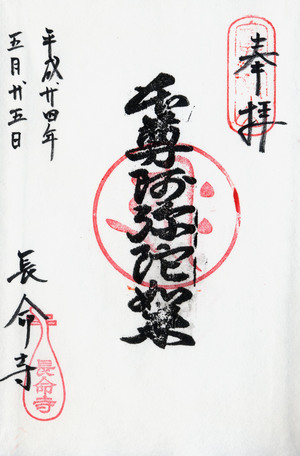 奉拝
本尊阿弥陀如来
平成廿四年
五月廿五日
長命寺
長命寺